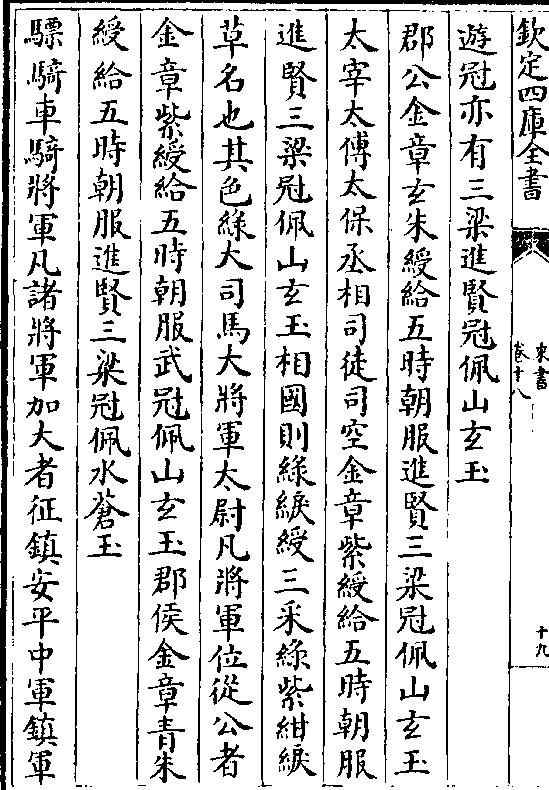 欽定四庫全書
宋書
卷十八
十九
遊冠亦有三梁進賢冠佩山玄玉
郡公金章玄朱綬給五時朝服進賢三梁冠佩山玄玉
太宰太傅太保丞相司徒司空金章紫綬給五時朝服
進賢三梁冠佩山玄玉相國則綠綟綬三采綠紫紺綟
草名也其色綠大司馬大將軍太尉凡將軍位從公者
金章紫綬給五時朝服武冠佩山玄玉郡侯金章青朱
綬給五時朝服進賢三梁冠佩水蒼玉
驃騎車騎將軍凡諸將軍加大者征鎮安平中軍鎮軍